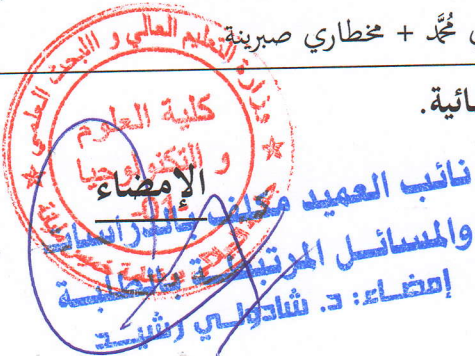 مُحَمَّد + مخطاري صبرينة
ائية.
وزارة التعليم العالي و البحث العلمي
كلية العلوم
و التكنولوجيا
الإمضاء
نائب العميد مكلف بالدراسات
والمسائل المرتبطة بالطلبة
إمضاء: د. شادولي رشيد